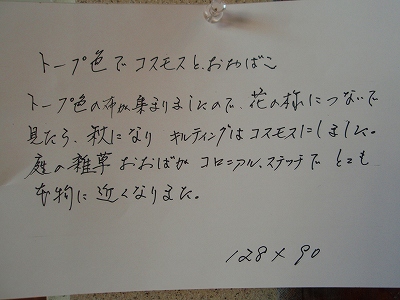 トープ色で コスモスと、おおばこ
トープ色の布が集まりましたので、花の様につないで
見たら、秋になり キルティングはコスモスにしました。
庭の雑草 おおばが コロニアル、ステッチで とても
本物に 近くなりました。
128×90